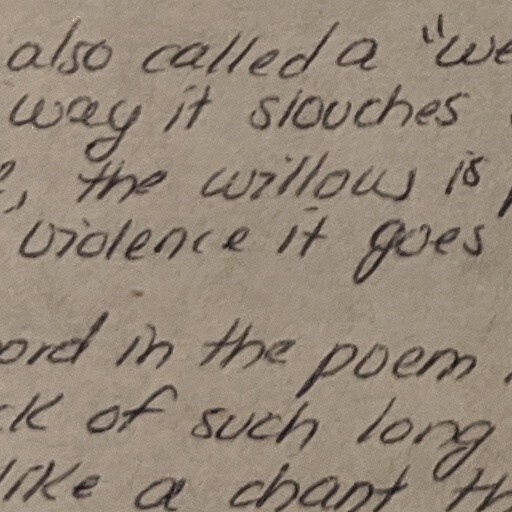 also called a "we
way it slouches
, the willows is
violence it goes
ord in the poem
ck of such long
like a chant th